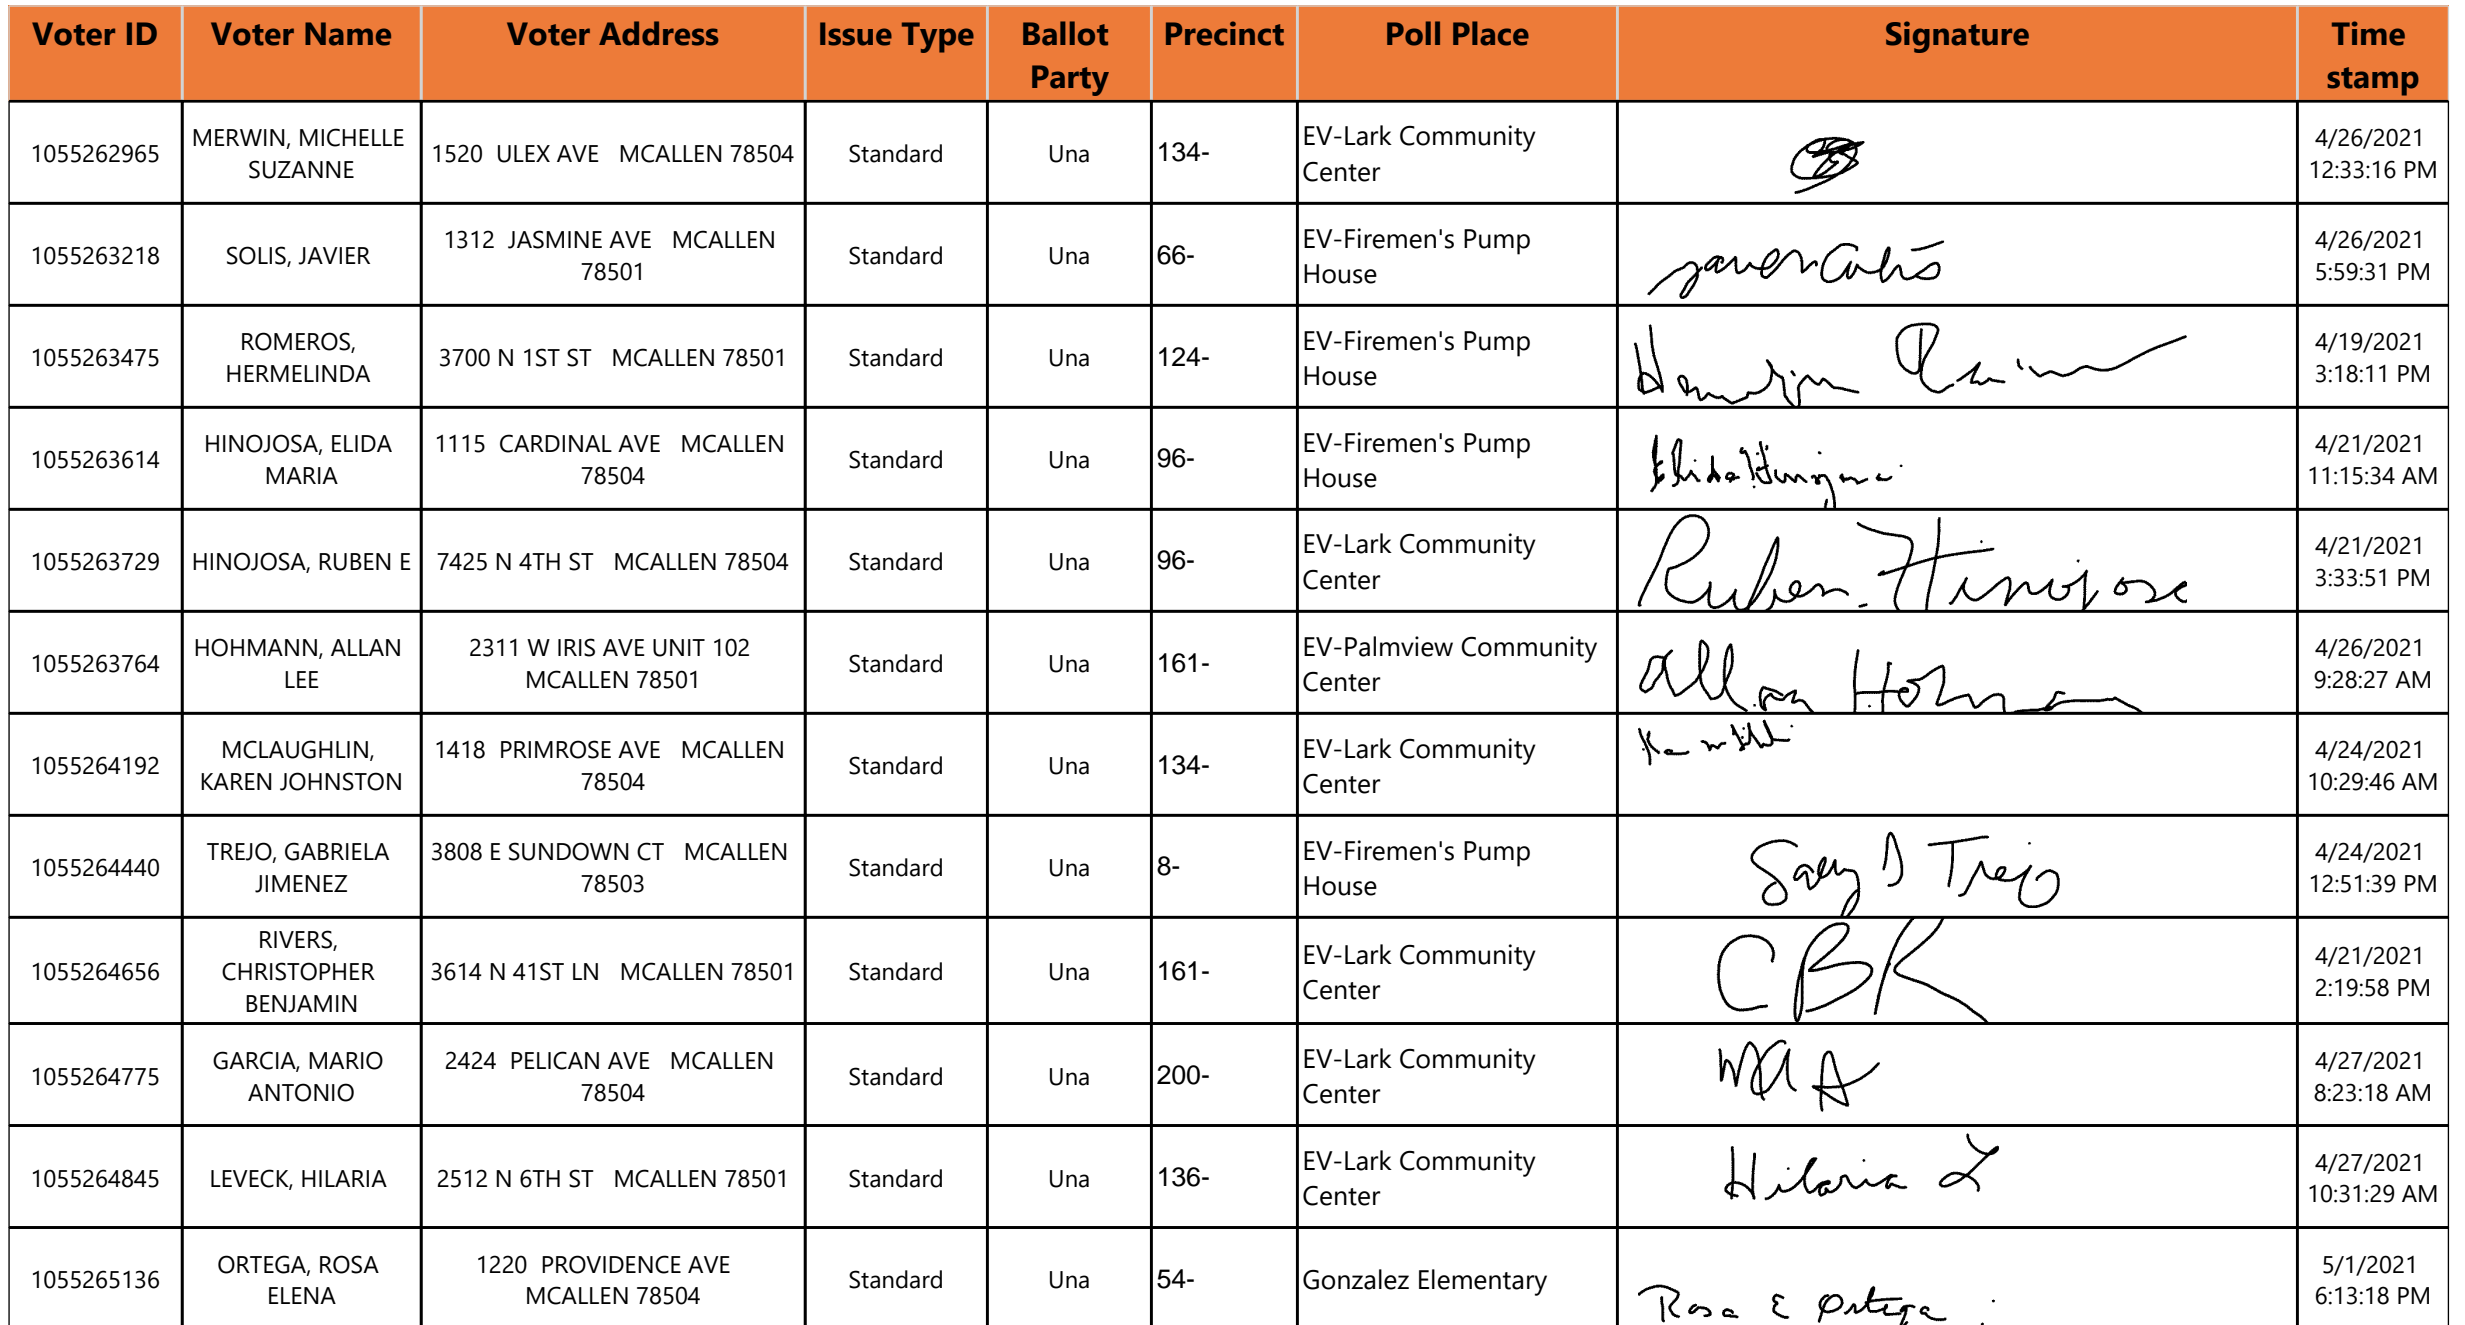 Voter ID Voter Name Voter Address Issue Type Ballot Party Precinct Poll Place Signature Time stamp
1055262965 MERWIN, MICHELLE SUZANNE 1520 ULEX AVE MCALLEN 78504 Standard Una 134- EV-Lark Community Center 4/26/2021 12:33:16 PM
1055263218 SOLIS, JAVIER 1312 JASMINE AVE MCALLEN 78501 Standard Una 66- EV-Firemen's Pump House 4/26/2021 5:59:31 PM
1055263475 ROMEROS, HERMELINDA 3700 N 1ST ST MCALLEN 78501 Standard Una 124- EV-Firemen's Pump House 4/19/2021 3:18:11 PM
1055263614 HINOJOSA, ELIDA MARIA 1115 CARDINAL AVE MCALLEN 78504 Standard Una 96- EV-Firemen's Pump House Elida Hinojosa 4/21/2021 11:15:34 AM
1055263729 HINOJOSA, RUBEN E 7425 N 4TH ST MCALLEN 78504 Standard Una 96- EV-Lark Community Center Ruben Hinojosa 4/21/2021 3:33:51 PM
1055263764 HOHMANN, ALLAN LEE 2311 W IRIS AVE UNIT 102 MCALLEN 78501 Standard Una 161- EV-Palmview Community Center Allan Hohman 4/26/2021 9:28:27 AM
1055264192 MCLAUGHLIN, KAREN JOHNSTON 1418 PRIMROSE AVE MCALLEN 78504 Standard Una 134- EV-Lark Community Center 4/24/2021 10:29:46 AM
1055264440 TREJO, GABRIELA JIMENEZ 3808 E SUNDOWN CT MCALLEN 78503 Standard Una 8- EV-Firemen's Pump House Trejo 4/24/2021 12:51:39 PM
1055264656 RIVERS, CHRISTOPHER BENJAMIN 3614 N 41ST LN MCALLEN 78501 Standard Una 161- EV-Lark Community Center CBR 4/21/2021 2:19:58 PM
1055264775 GARCIA, MARIO ANTONIO 2424 PELICAN AVE MCALLEN 78504 Standard Una 200- EV-Lark Community Center 4/27/2021 8:23:18 AM
1055264845 LEVECK, HILARIA 2512 N 6TH ST MCALLEN 78501 Standard Una 136- EV-Lark Community Center Hilaria L 4/27/2021 10:31:29 AM
1055265136 ORTEGA, ROSA ELENA 1220 PROVIDENCE AVE MCALLEN 78504 Standard Una 54- Gonzalez Elementary Rosa E Ortega 5/1/2021 6:13:18 PM